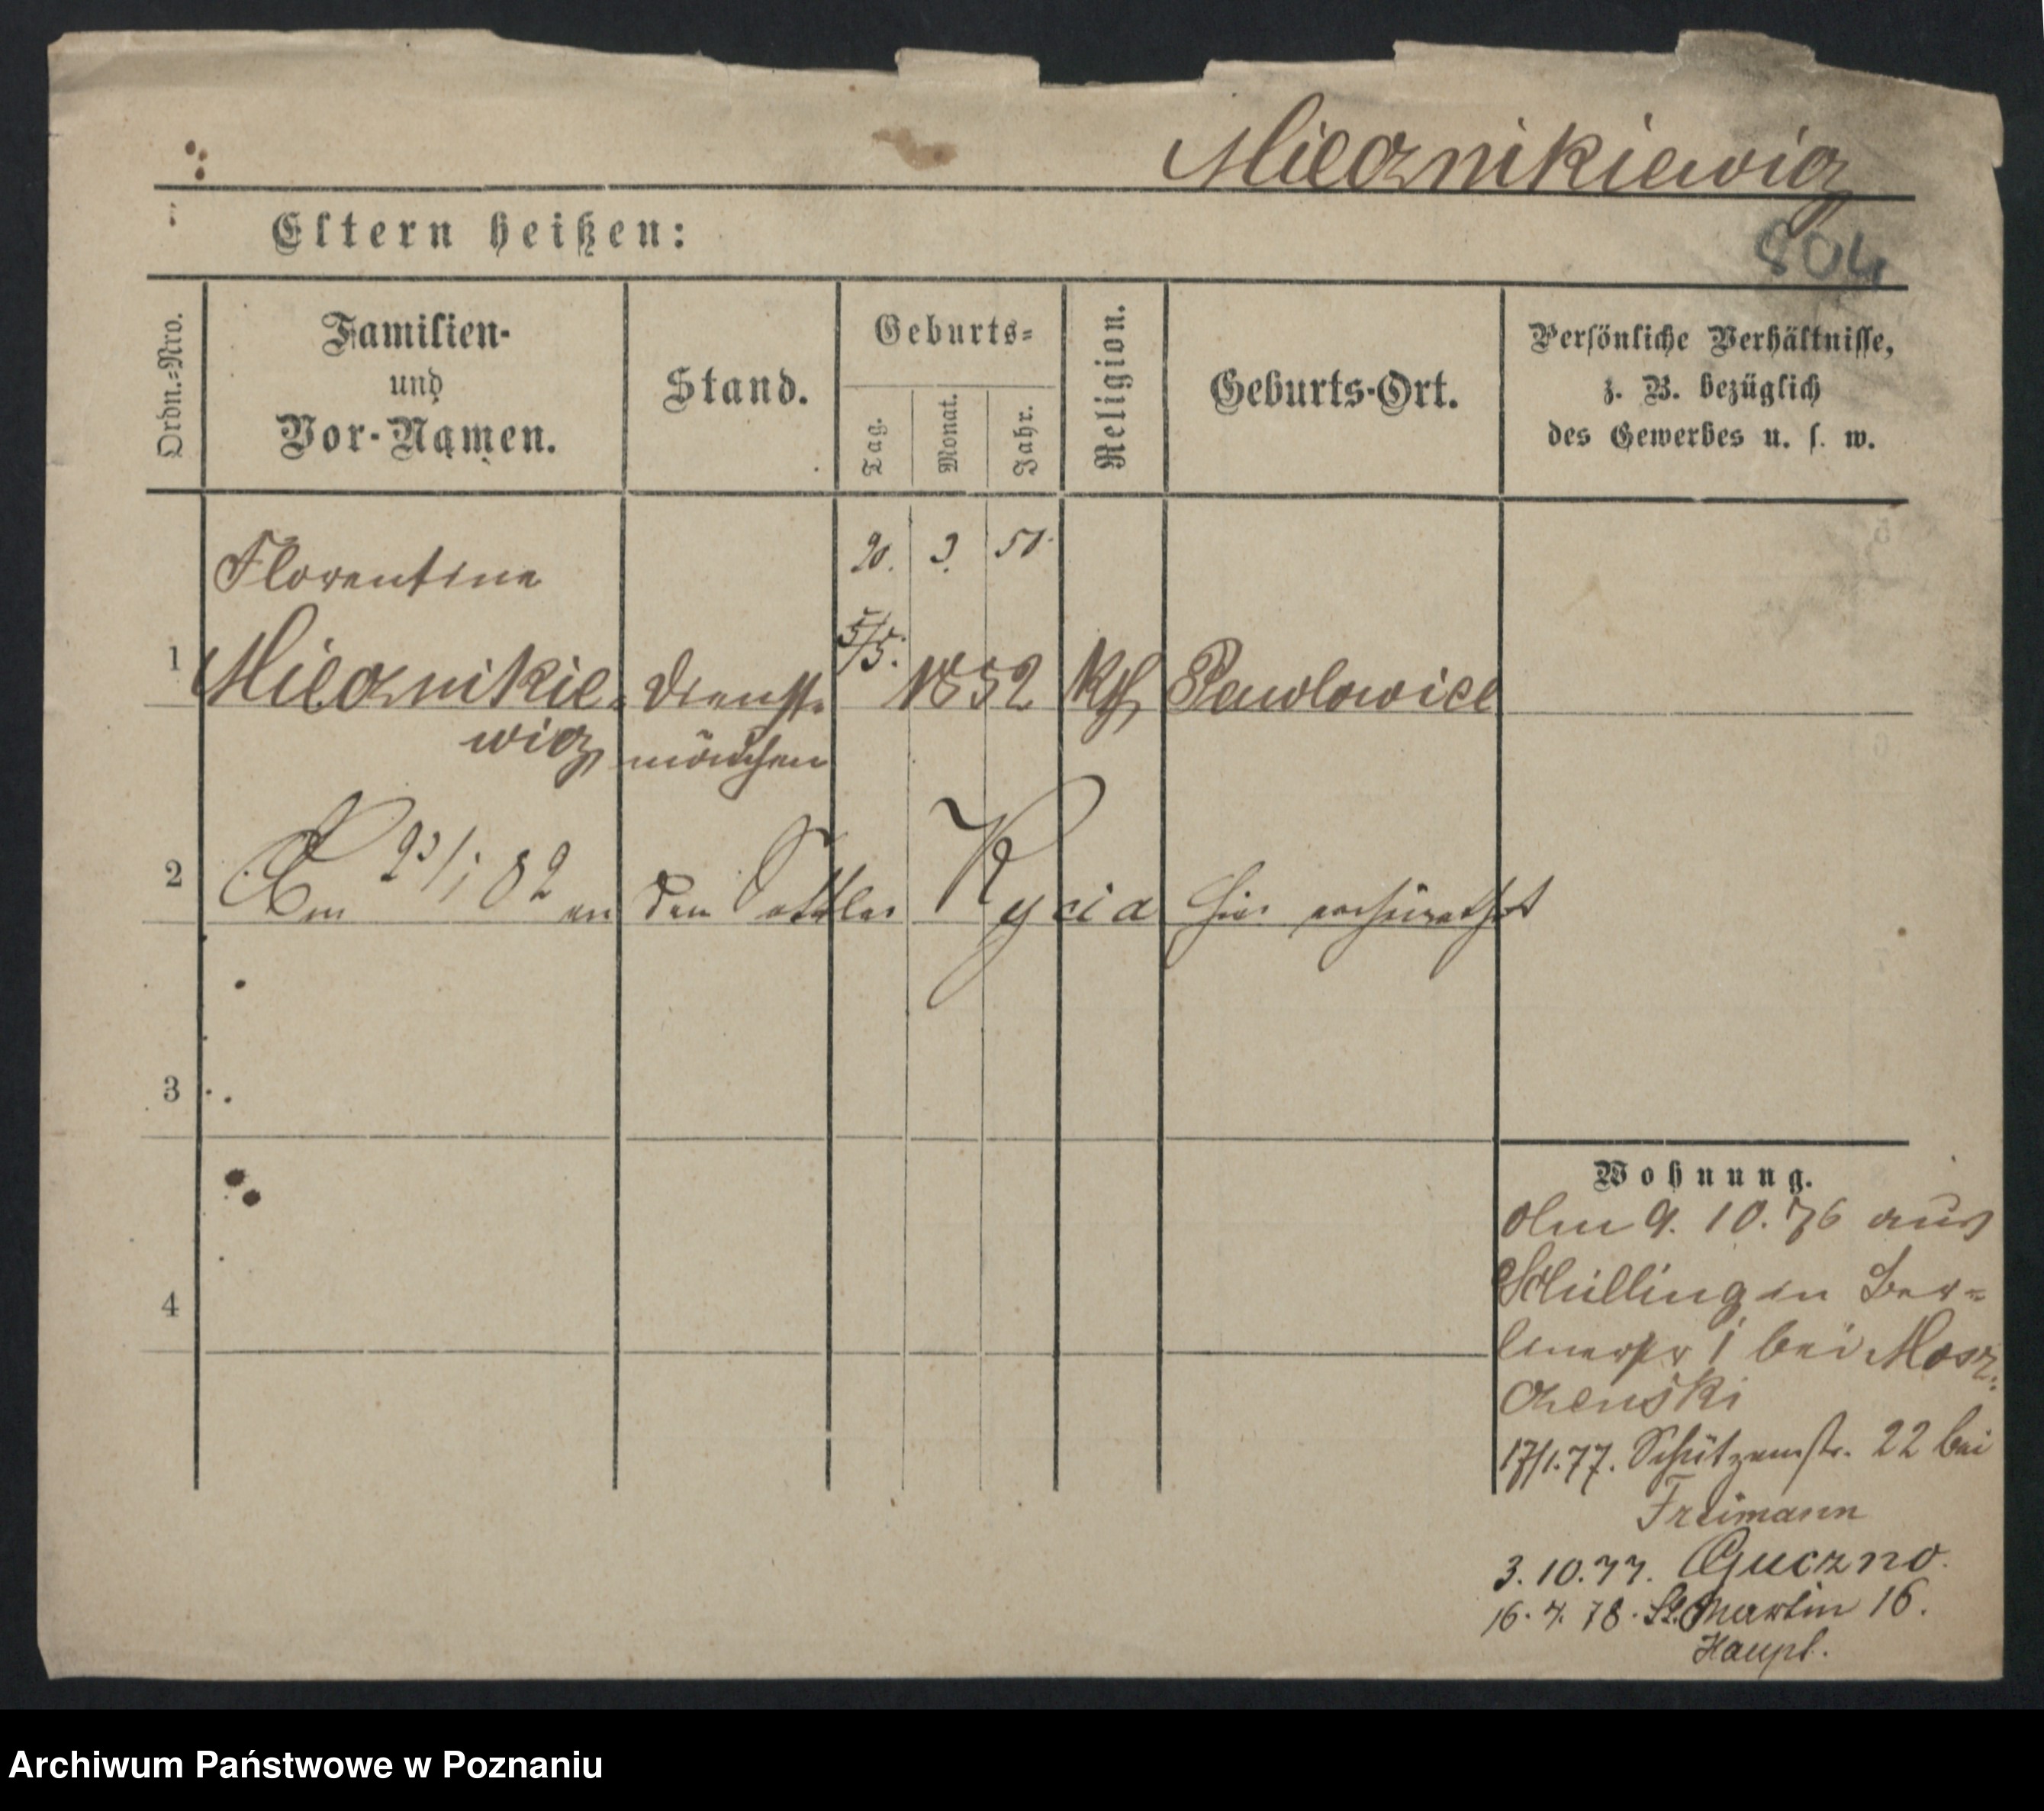 Miecznikiewicz
804
Eltern heißen:
Ordn.-Nro.
Familien-
und
Vor-Namen.
Stand.
Geburts-
Tag.
Monat.
Jahr.
Religion.
Geburts-Ort.
Persönliche Verhältnisse,
z. B. bezüglich
des Gewerbes u. s. w.
20. 3. 51.
Florentine
5/5.
1 Miecznikie- Dienst- 1852 kth Pawlowice
wicz mädchen
2 Am 23/1 82 an den Sattler Kycia hier verheirathet
3
4
Wohnung.
Am 9. 10. 76 aus
Schilling in Ber-
linerstr 1 bei Mosz-
czenski
17/1.77. Schützenstr. 22 bei
Freimann
3. 10. 77. Guczno.
16. 4. 78. St. Martin 16.
Haupt.
Archiwum Państwowe w Poznaniu